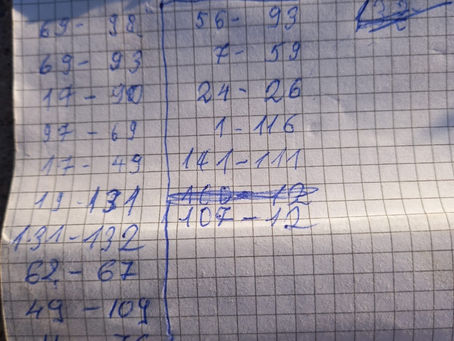 69 - 98
69 - 93
17 - 90
97 - 69
17 - 49
19 - 131
131 - 132
62 - 67
49 - 109
56 - 99
7 - 59
24 - 26
1 - 116
141 - 111
107 - 12